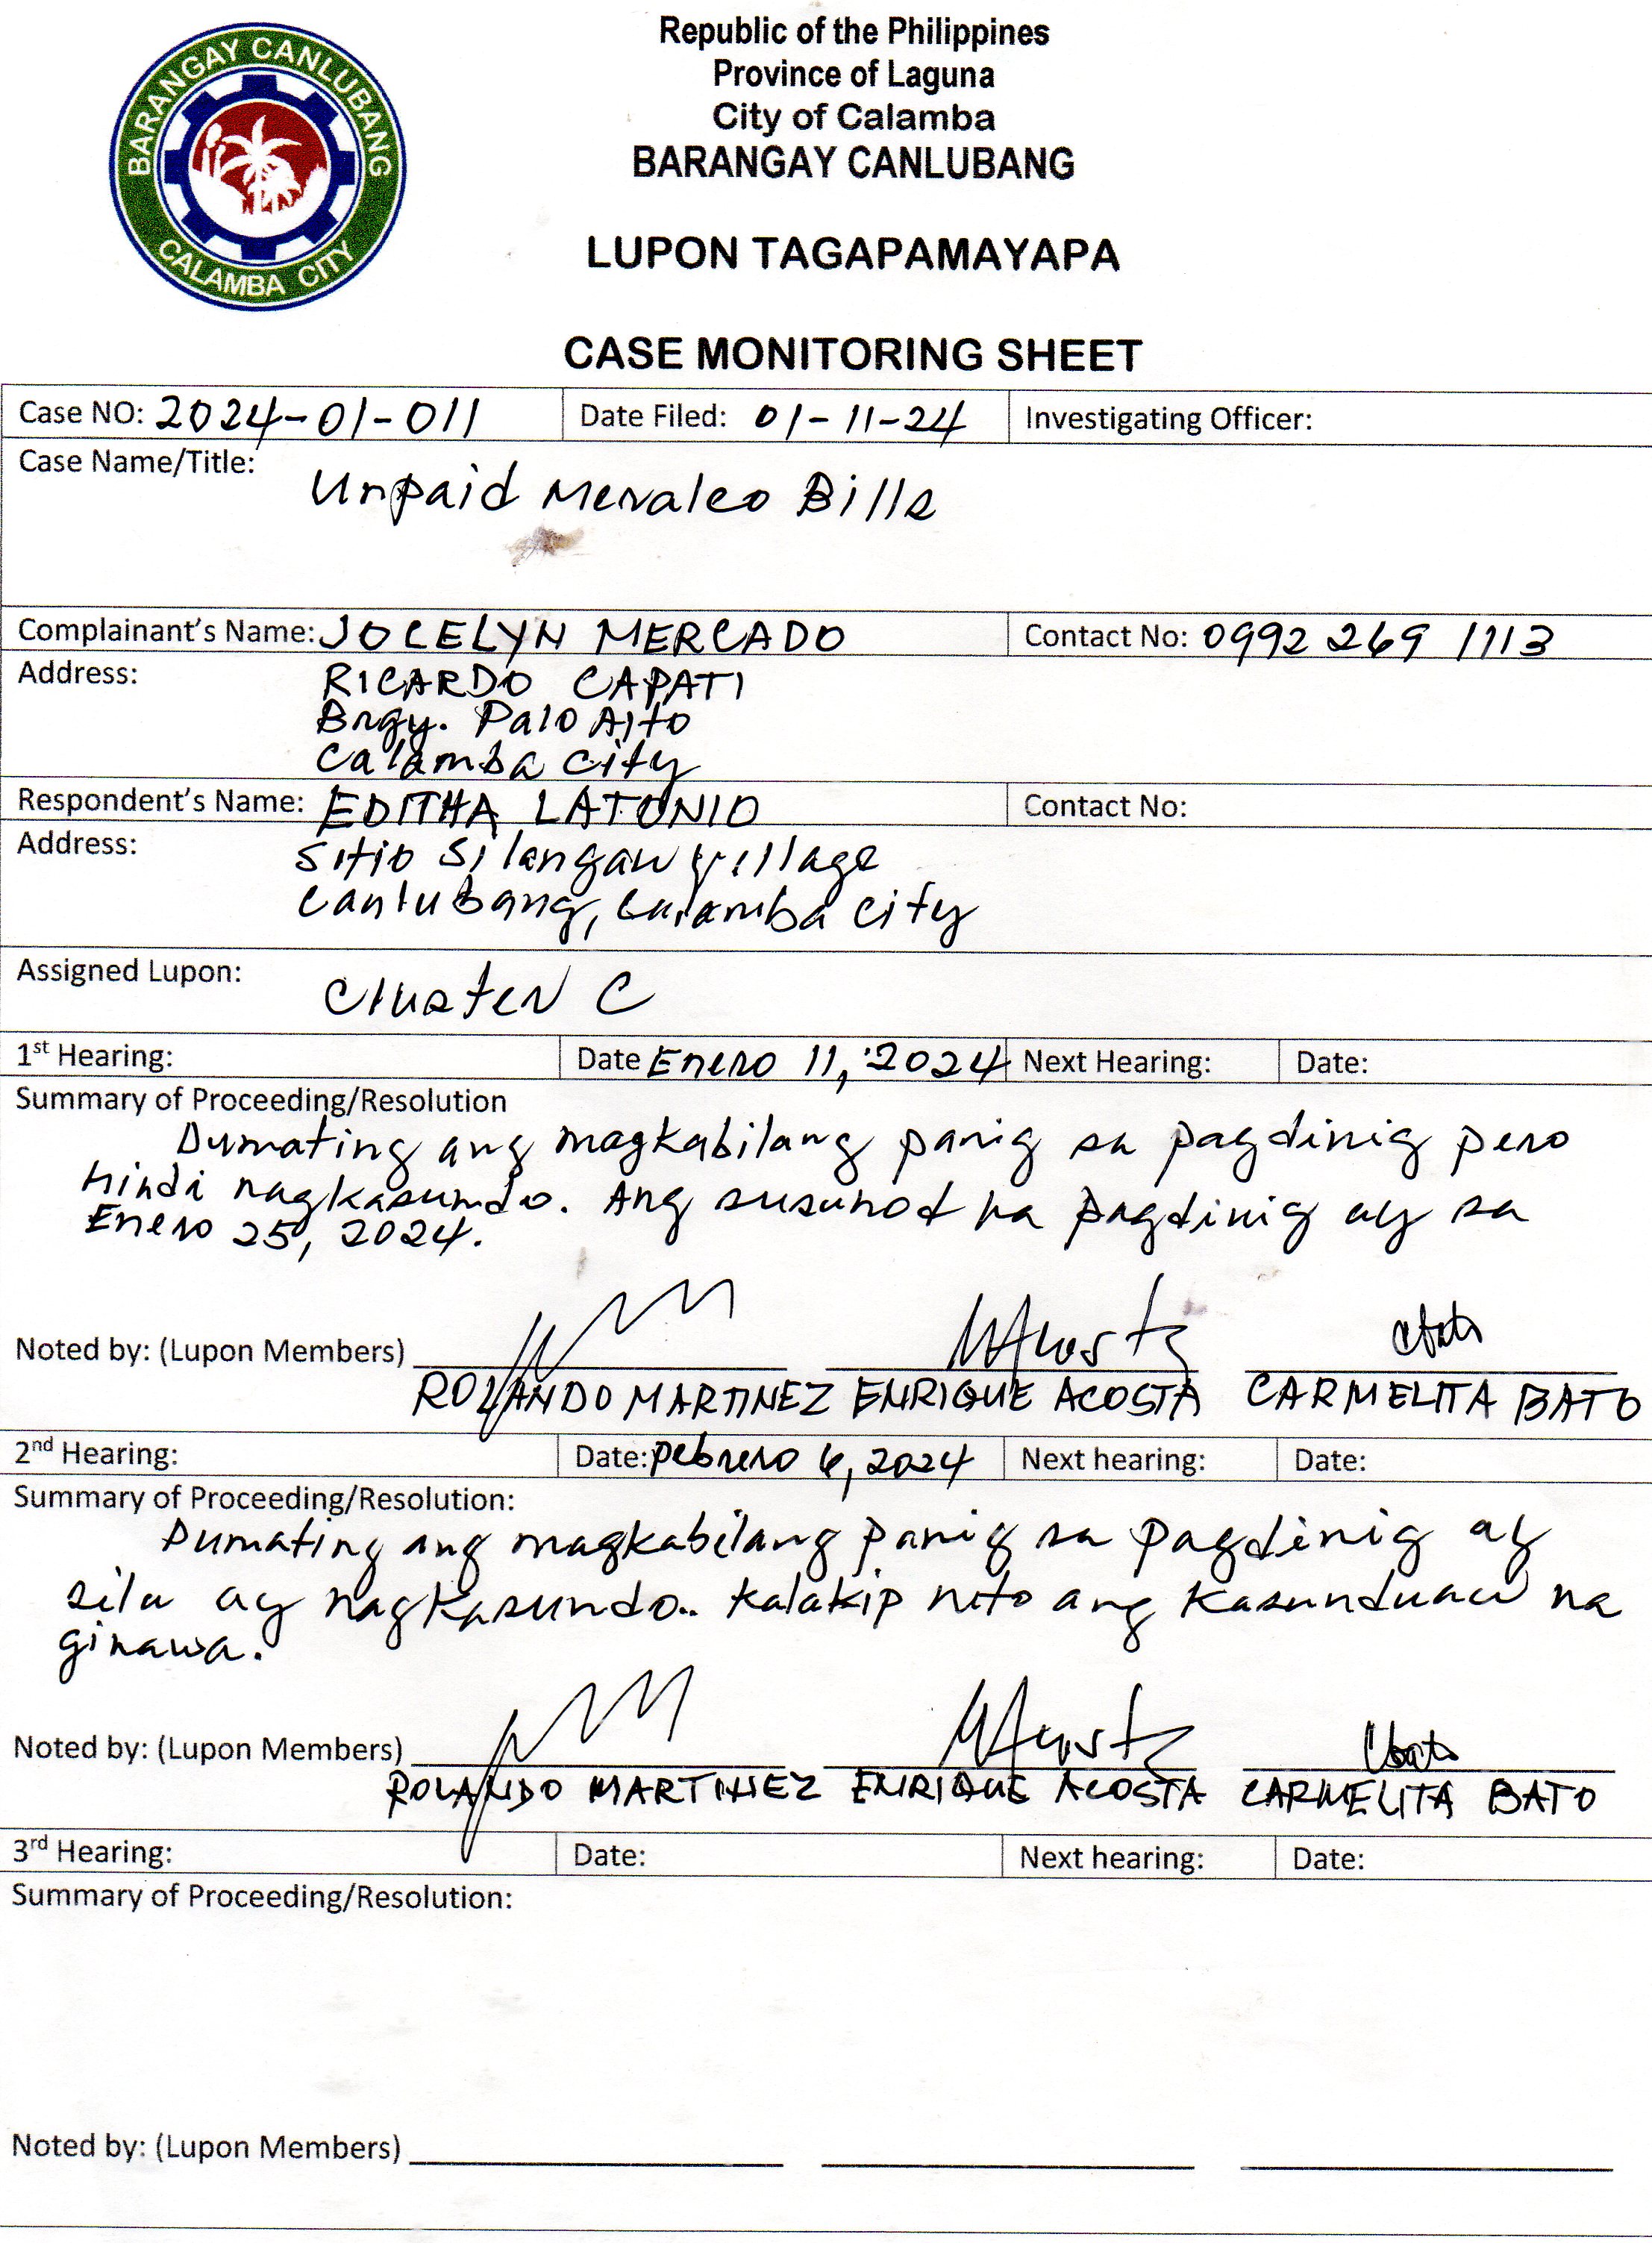 BARANGAY CANLUBANG
CALAMBA CITY
Republic of the Philippines
Province of Laguna
City of Calamba
BARANGAY CANLUBANG
LUPON TAGAPAMAYAPA
CASE MONITORING SHEET
Case NO: 2024-01-011 Date Filed: 01-11-24 Investigating Officer:
Case Name/Title: Unpaid Meralco Bills
Complainant's Name: JOCELYN MERCADO Contact No: 0992 269 1113
Address: RICARDO CAPATI
Brgy. Palo Alto
Calamba City
Respondent's Name: EDITHA LATONIO Contact No:
Address: Sitio Silangan Village
Canlubang, Calamba City
Assigned Lupon: Cluster C
1st Hearing: Date Enero 11, 2024 Next Hearing: Date:
Summary of Proceeding/Resolution
Dumating ang magkabilang panig sa pagdinig pero
hindi nagkasundo. Ang susunod na pagdinig ay sa
Enero 25, 2024.
Noted by: (Lupon Members)
ROLANDO MARTINEZ ENRIQUE ACOSTA CARMELITA BATO
2nd Hearing: Date: Pebrero 6, 2024 Next hearing: Date:
Summary of Proceeding/Resolution:
Dumating ang magkabilang panig sa pagdinig ay
sila ay nagkasundo.. Kalakip nito ang kasunduan na
ginawa.
Noted by: (Lupon Members)
ROLANDO MARTINEZ ENRIQUE ACOSTA CARMELITA BATO
3rd Hearing: Date: Next hearing: Date:
Summary of Proceeding/Resolution:
Noted by: (Lupon Members)